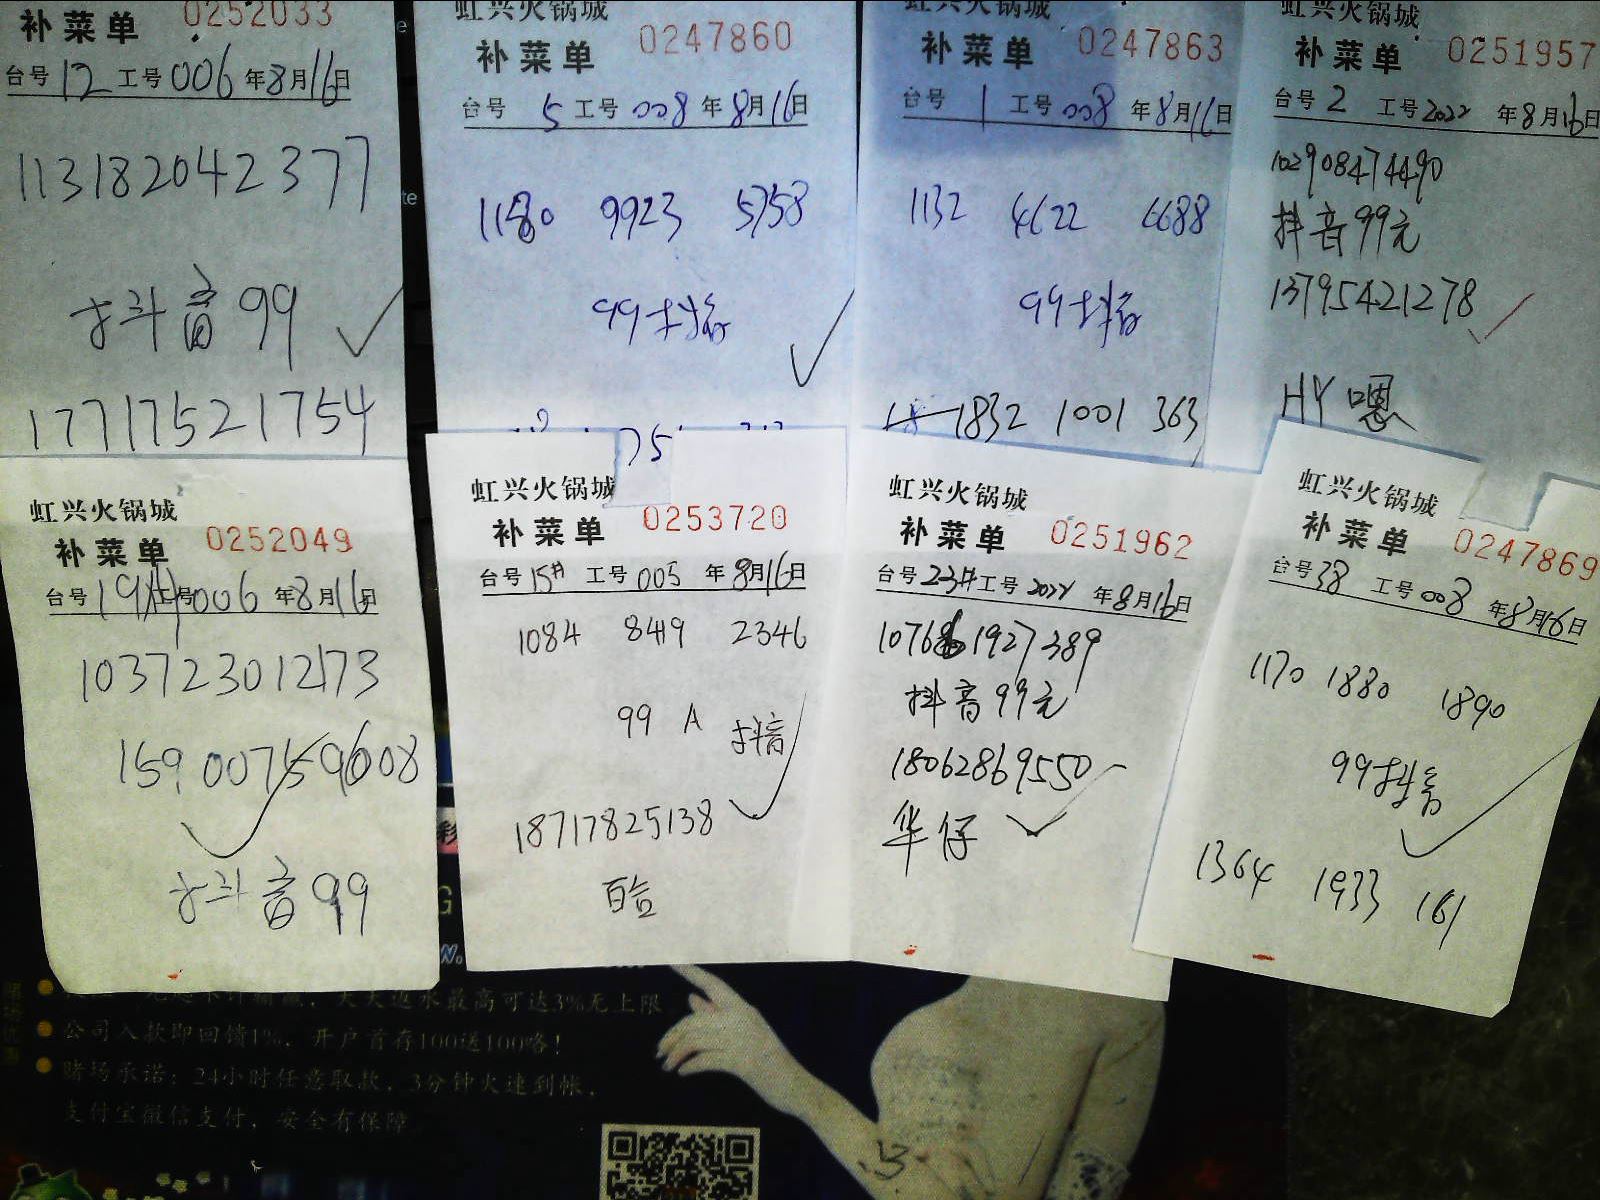 补菜单 0252033
台号 12 工号 006 年 8 月 16 日
113182042377
抖音 99
17717521754
虹兴火锅城
补菜单 0247860
台号 5 工号 008 年 8 月 16 日
1180 9923 5758
99抖音
虹兴火锅城
补菜单 0247863
台号 1 工号 008 年 8 月 16 日
1132 4622 6688
99抖音
1832 1001 363
虹兴火锅城
补菜单 0251957
台号 2 工号 2022 年 8 月 16 日
102908474490
抖音99元
13795421278
HY 嗯
虹兴火锅城
补菜单 0252049
台号 19# 工号 006 年 8 月 16 日
103723012173
抖音99
虹兴火锅城
补菜单 0253720
台号 15# 工号 005 年 8 月 16 日
1084 8419 2346
99 A 抖音
18717825138
百合
虹兴火锅城
补菜单 0251962
台号 23# 工号 2022 年 8 月 16 日
抖音99元
18062869550
华仔
虹兴火锅城
补菜单 0247869
台号 38 工号 008 年 8 月 16 日
1170 1880 1890
99抖音
1364 1933 161
天天返水最高可达3%无上限
公司入款即回馈1%，开户首存100送100咯！
赌场承诺：24小时任意取款，3分钟火速到帐，
支付宝微信支付，安全有保障